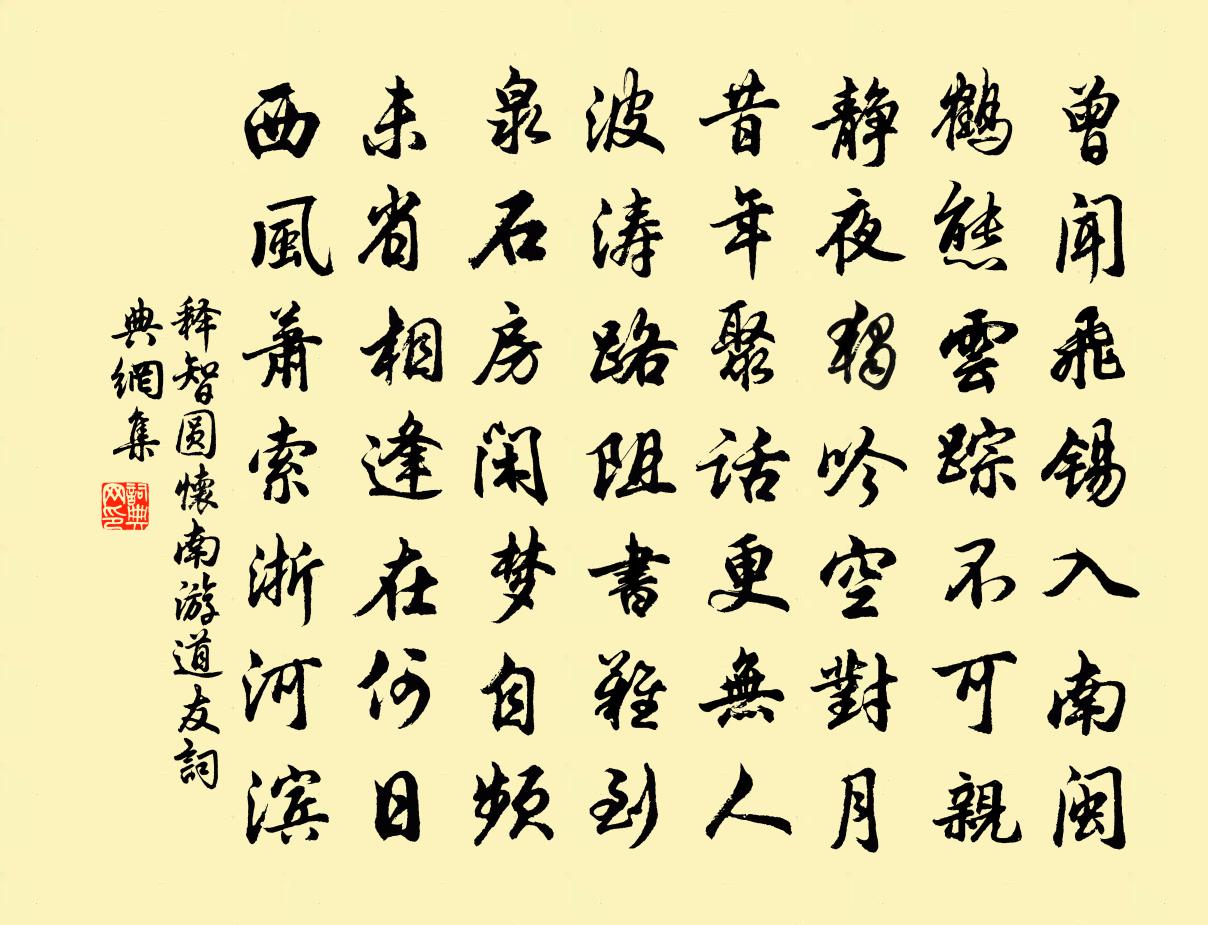 曾闻飛锡入南闽
鶴態雲踪不可親
静夜獨吟空對月
昔年聚話更無人
波涛路阻書難到
泉石房闲梦自频
未省相逢在何日
西風萧索浙河滨
释智圆懷南游道友詞
典網集
詞典网印